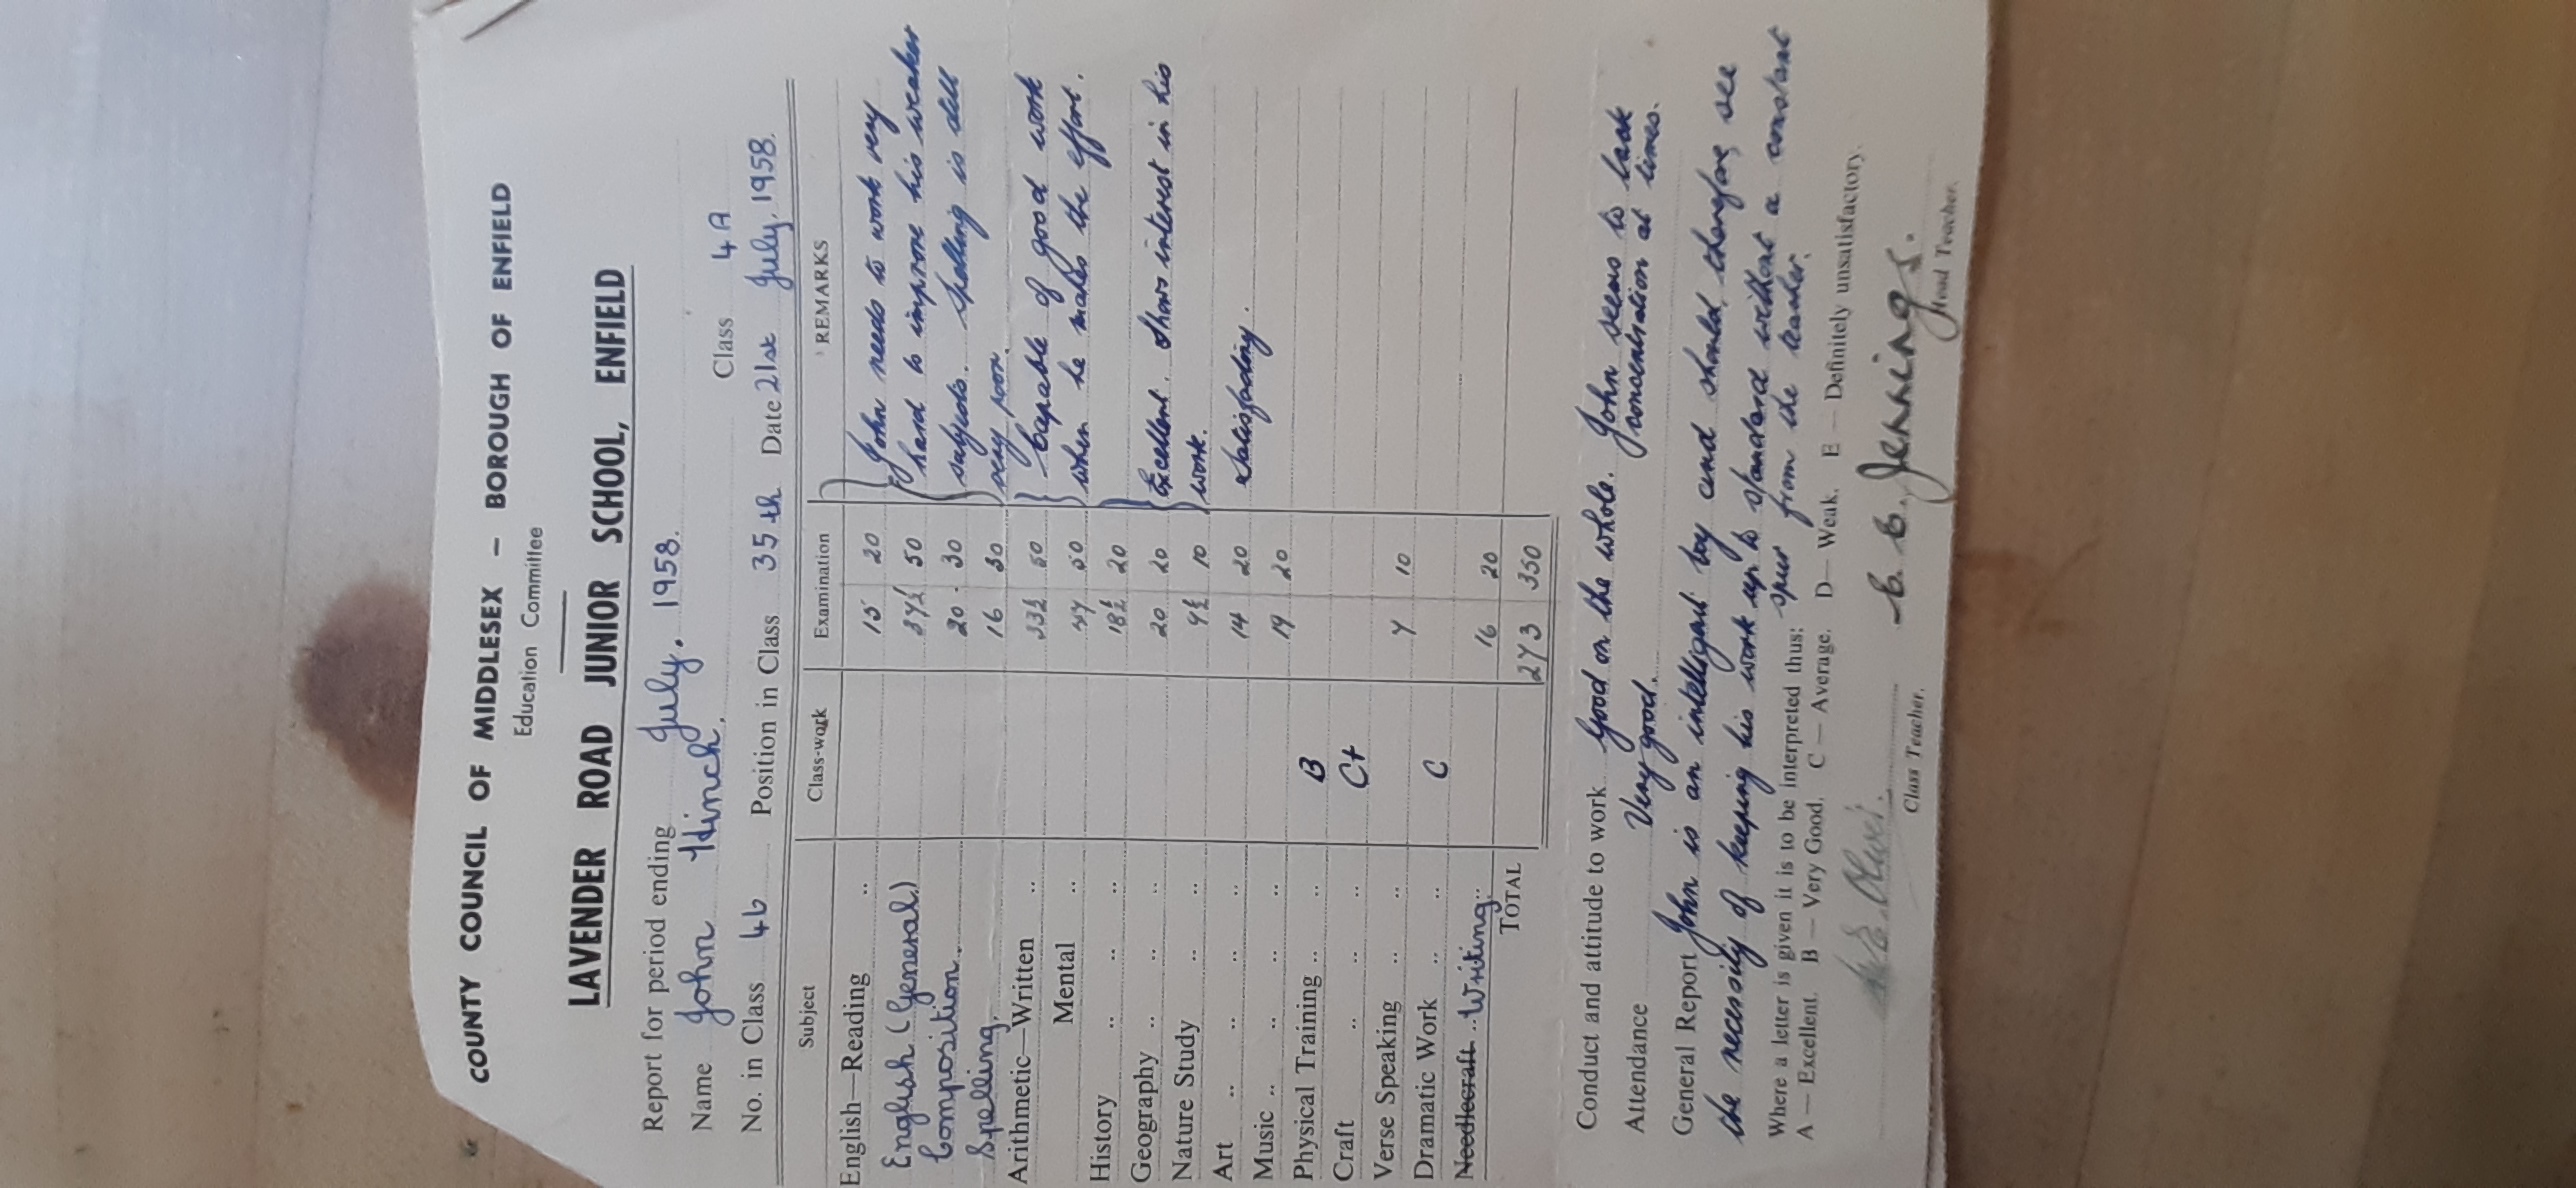 COUNTY COUNCIL OF MIDDLESEX – BOROUGH OF ENFIELD
Education Committee
LAVENDER ROAD JUNIOR SCHOOL, ENFIELD
Report for period ending July. 1958.
Name John Hinch. Class 4A
No. in Class 46 Position in Class 35th Date 21st July, 1958.
Subject Class-work Examination REMARKS
English—Reading .. 15 20 John needs to work very
English (General) 37½ 50 hard to improve his weaker
Composition. 20 30 subjects. Spelling is still
Spelling. 16 30 very poor.
Arithmetic—Written .. 33½ 50 Capable of good work
Mental .. 47 50 when he makes the effort.
History .. .. .. 18½ 20
Geography .. .. .. 20 20 Excellent. Shows interest in his
Nature Study .. .. 9½ 10 work.
Art .. .. .. .. 14 20 Satisfactory.
Music .. .. .. .. 19 20
Physical Training .. .. B
Craft .. .. .. C+
Verse Speaking .. .. 7 10
Dramatic Work .. .. C
Needlecraft .. Writing .. 16 20
TOTAL 273 350
Conduct and attitude to work Good on the whole. John seems to lack
concentration at times.
Attendance Very good.
General Report John is an intelligent boy and should, therefore, see
the necessity of keeping his work up to standard without a constant
spur from the teacher.
Where a letter is given it is to be interpreted thus:
A — Excellent. B — Very Good. C — Average. D — Weak. E — Definitely unsatisfactory.
Class Teacher. Jennings. Head Teacher.